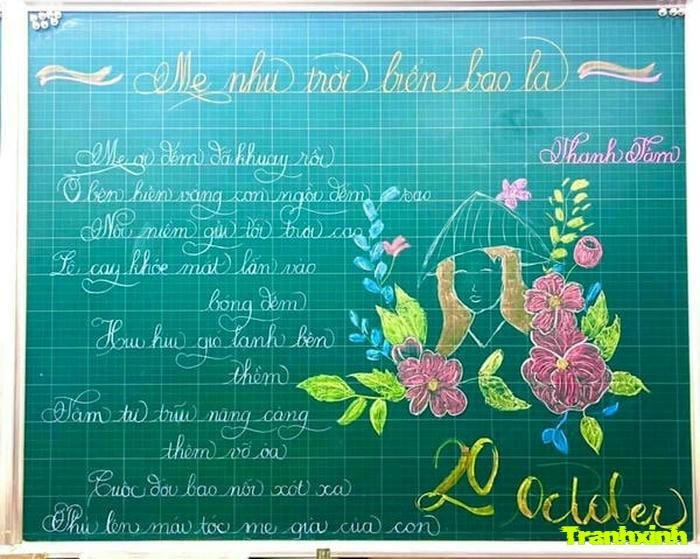 Mẹ như trời biển bao la
Thanh Tâm
Mẹ ơi đêm đã khuya rồi
Ở bên hiên vắng con ngồi đếm sao
Nỗi niềm gửi tới trời cao
Lệ cay khóe mắt lẩn vào
bóng đêm
Hưu hưu gió lạnh bên
thềm
Tâm tư trĩu nặng càng
thêm vỡ òa
Cuộc đời bao nỗi xót xa
Phủ lên mái tóc mẹ già của con
20 October
Tranhxinh